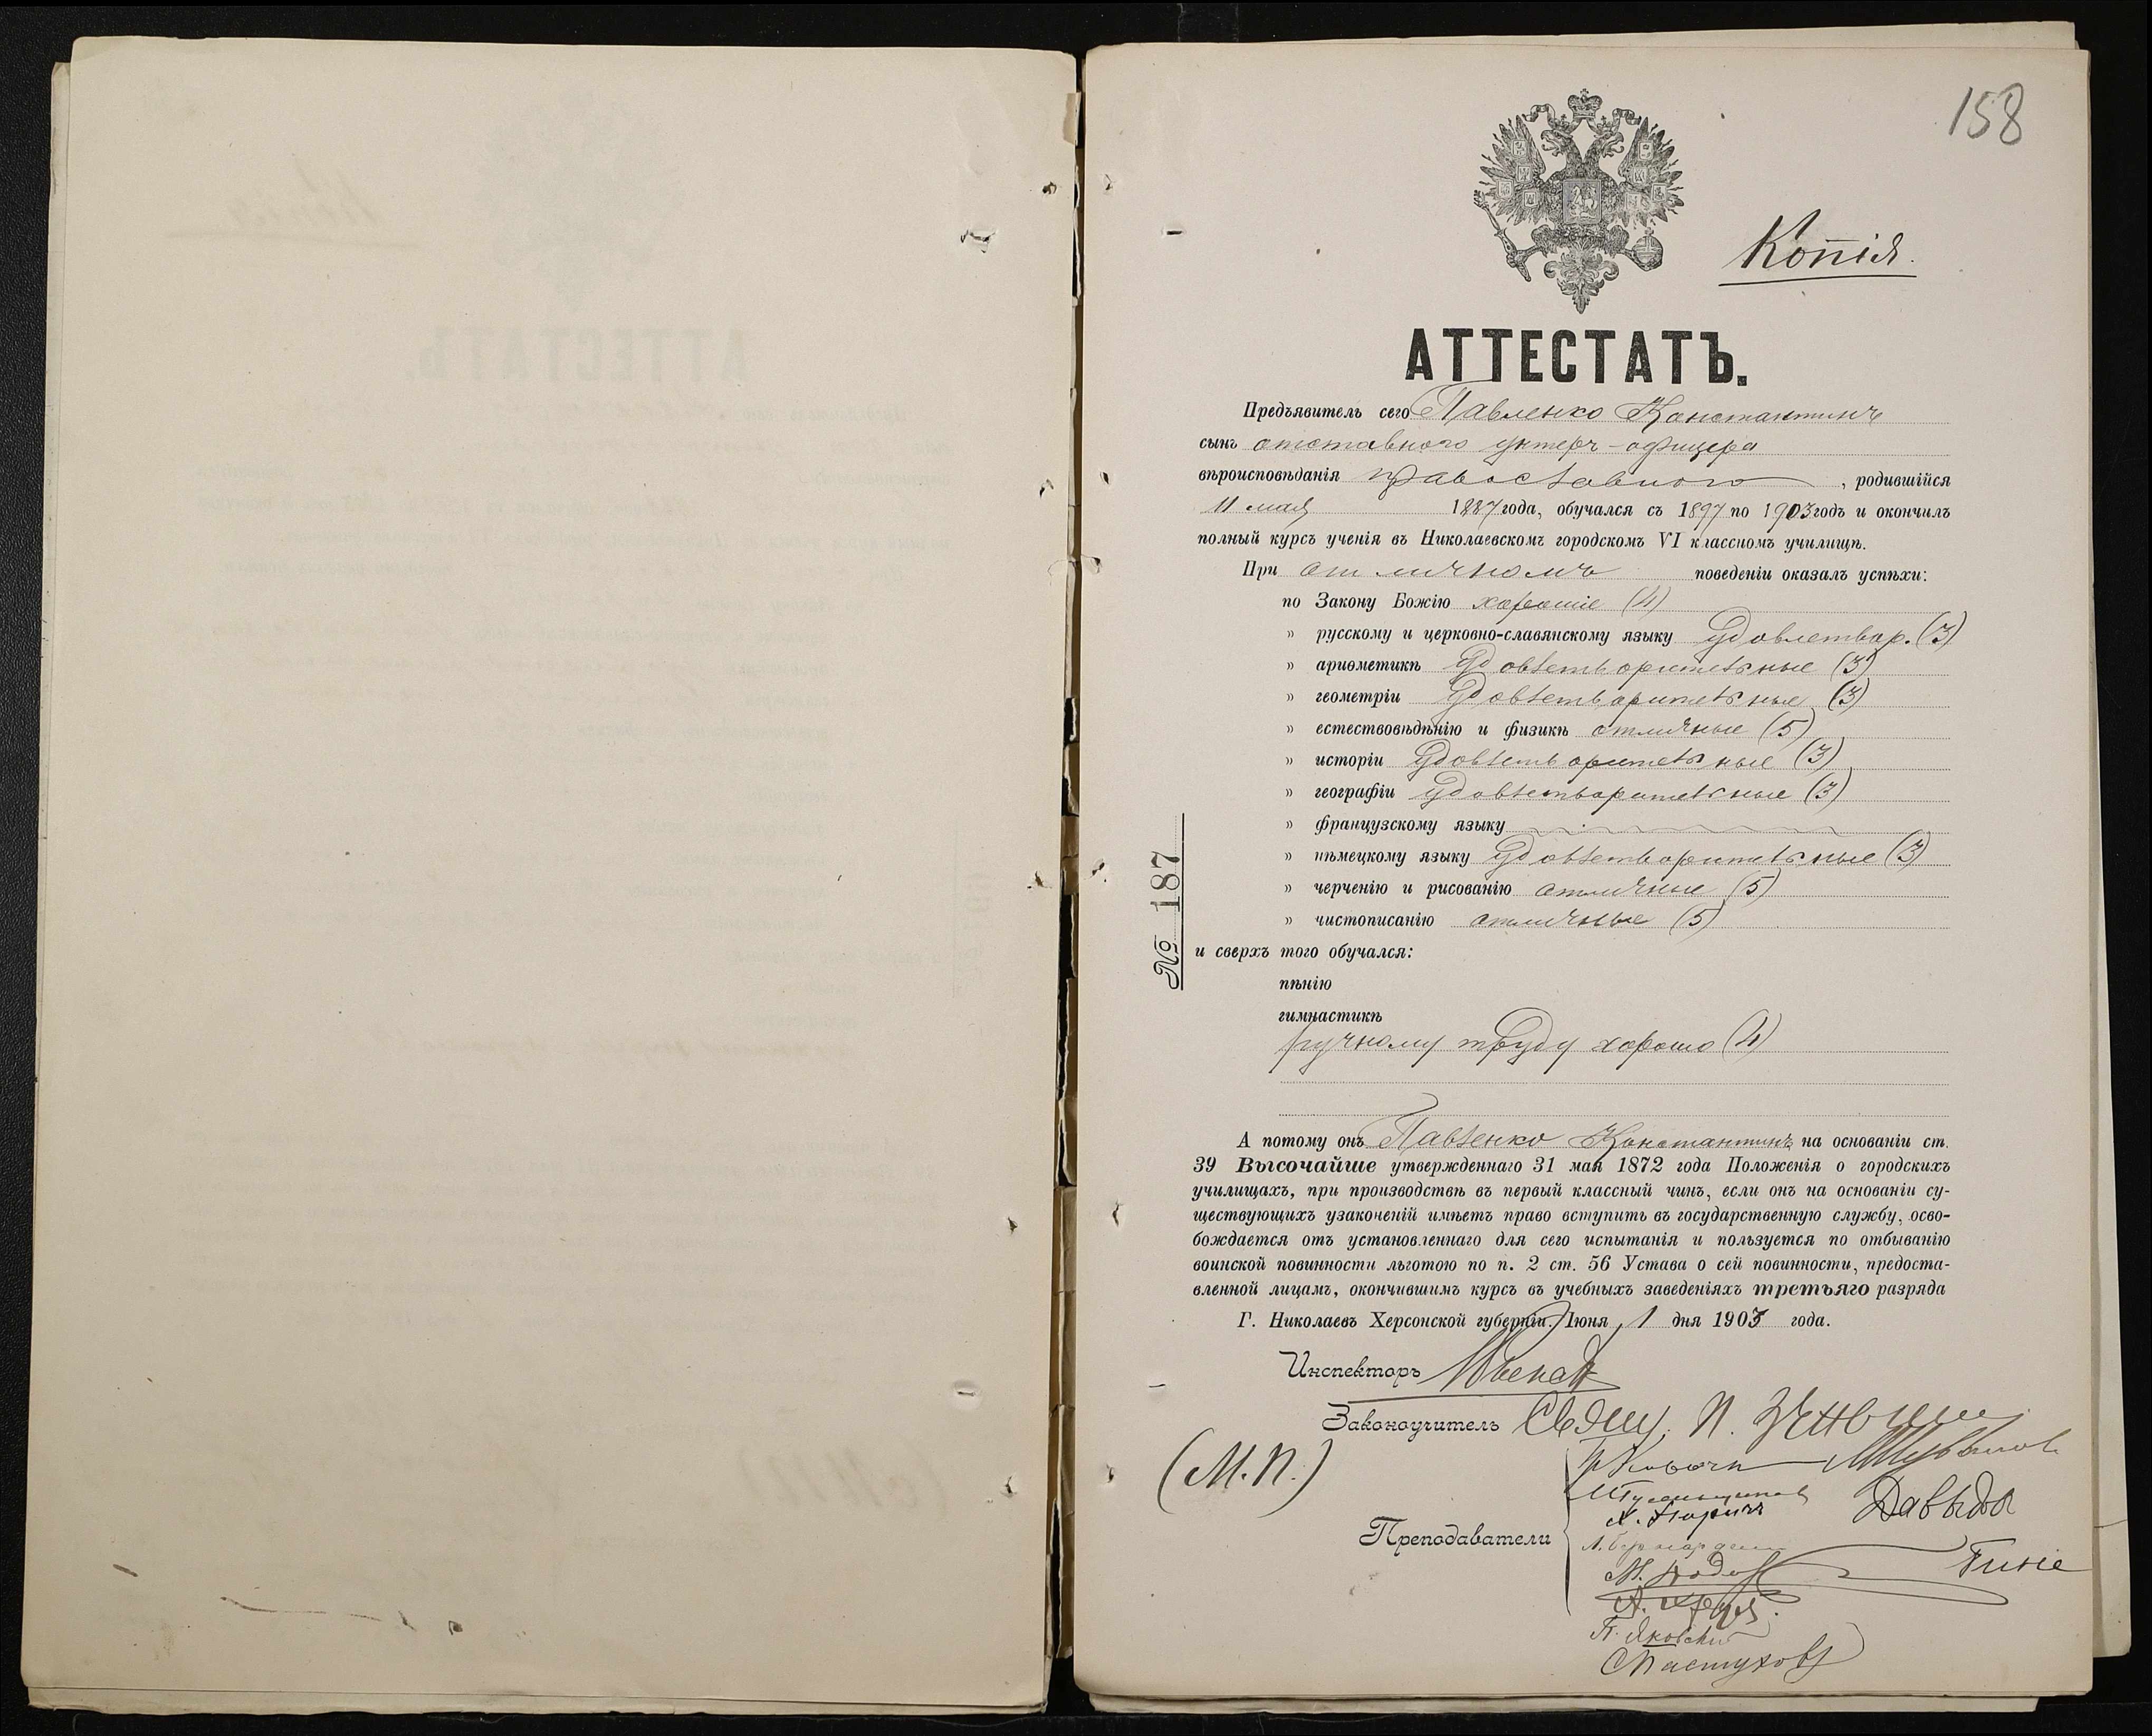 158
Копія.
АТТЕСТАТЪ.
Предъявитель сего Павленко Константинъ
сынъ отставного унтеръ-офицера
вѣроисповѣданія православного, родившійся
11 мая 1887 года, обучался съ 1897 по 1903 годъ и окончилъ
полный курсъ ученія въ Николаевскомъ городскомъ VI классномъ училищѣ.
При отличномъ поведеніи оказалъ успѣхи:
по Закону Божію хорошіе (4)
» русскому и церковно-славянскому языку удовлетвор. (3)
» ариѳметикѣ удовлетворительные (3)
» геометріи удовлетворительные (3)
» естествовѣдѣнію и физикѣ отличные (5)
» исторіи удовлетворительные (3)
» географіи удовлетворительные (3)
» французскому языку
» нѣмецкому языку удовлетворительные (3)
» черченію и рисованію отличные (5)
» чистописанію отличные (5)
№ 187
и сверхъ того обучался:
пѣнію
гимнастикѣ
ручному труду хорошо (4)
А потому онъ Павленко Константинъ на основаніи ст.
39 Высочайше утвержденнаго 31 мая 1872 года Положенія о городскихъ
училищахъ, при производствѣ въ первый классный чинъ, если онъ на основаніи су-
ществующихъ узаконеній имѣетъ право вступить въ государственную службу, осво-
бождается отъ установленнаго для сего испытанія и пользуется по отбыванію
воинской повинности льготою по п. 2 ст. 56 Устава о сей повинности, предоста-
вленной лицамъ, окончившимъ курсъ въ учебныхъ заведеніяхъ третьяго разряда
Г. Николаевъ Херсонской губерніи. Іюня 1 дня 1903 года.
Инспекторъ
Законоучитель Свящ. П.
(М.П.)
Преподаватели
Давыдов
П. Яковскій
С Пастухов